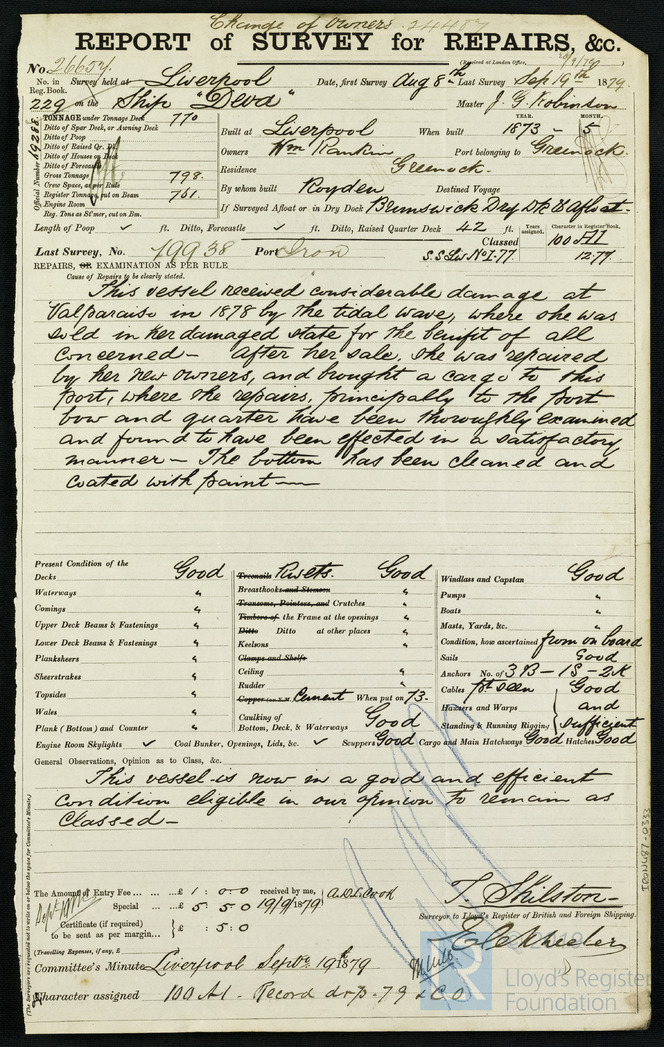 Change of Owners 24487
REPORT of SURVEY for REPAIRS, &c.
(Received at London Office,
No. 26654. Survey held at Liverpool Date, first Survey Aug 8th Last Survey Sep 19th 1879.
No. in Reg. Book.
229 on the Ship "Deva" Master J. G. Robinson
TONNAGE under Tonnage Deck 770
Ditto of Spar Deck, or Awning Deck
Ditto of Poop
Ditto of Raised Qr. Dk
Ditto of Houses on Deck
Ditto of Forecastle
Gross Tonnage 798.
Crew Space, as per Rule
Register Tonnage, cut on Beam 761.
Engine Room
Reg. Tons as St'mer, cut on Bm.
Official Number
YEAR. MONTH.
Built at Liverpool When built 1873 - 5
Owners Wm Rankin Port belonging to Greenock.
Residence Greenock.
By whom built Royden Destined Voyage
If Surveyed Afloat or in Dry Dock Brunswick Dry Dk & afloat.
Length of Poop ✓ ft. Ditto, Forecastle ✓ ft. Ditto, Raised Quarter Deck 42 ft.
Years assigned. Character in Register Book,
Classed 100 A1
S.S. Liv No 1-77 12.77
Last Survey, No. 19938 Port Iron
REPAIRS, OR EXAMINATION AS PER RULE
Cause of Repairs to be clearly stated.
This vessel received considerable damage at
Valparaiso in 1878 by the tidal wave, where she was
sold in her damaged state for the benefit of all
concerned - After her sale, she was repaired
by her new owners, and brought a cargo to this
port, where the repairs, principally to the port
bow and quarter have been thoroughly examined
and found to have been effected in a satisfactory
manner - The bottom has been cleaned and
coated with paint -
Present Condition of the
Decks Good
Waterways "
Comings "
Upper Deck Beams & Fastenings "
Lower Deck Beams & Fastenings "
Planksheers "
Sheerstrakes "
Topsides "
Wales "
Plank (Bottom) and Counter "
Engine Room Skylights ✓ Coal Bunker, Openings, Lids, &c. ✓ Scuppers Good Cargo and Main Hatchways Good Hatches Good
Treenails Rivets. Good
Breasthooks and Stemson "
Transoms, Pointers, and Crutches "
Timbers of the Frame at the openings "
Ditto Ditto at other places "
Keelsons "
Clamps and Shelfs
Ceiling "
Rudder "
Copper Cement When put on 73.
Caulking of Bottom, Deck, & Waterways Good
Windlass and Capstan Good
Pumps "
Boats "
Masts, Yards, &c. "
Condition, how ascertained from on board
Sails Good
Anchors No. of 3B - 1S - 2K
Cables Pt seen Good
Hawsers and Warps and
Standing & Running Rigging sufficient
General Observations, Opinion as to Class, &c.
This vessel is now in a good and efficient
condition eligible in our opinion to remain as
Classed -
The Amount of Entry Fee ... ... ...£ 1 : 0 : 0 received by me,
Special ... ...£ 5 : 5 : 0 19/9/1879 A.D.C. Cook
Certificate (if required) to be sent as per margin... £ : 5 : 0
(Travelling Expenses, if any, £
T. Skilston
Surveyor to Lloyd's Register of British and Foreign Shipping.
Committee's Minute Liverpool Septr 19th 1879
Character assigned 100 A1 -
Lloyd's Register
Foundation
IRON487-0333